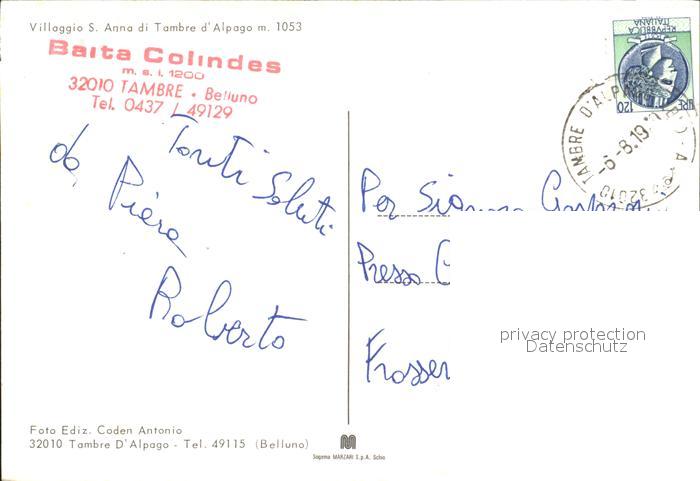 Villaggio S. Anna di Tambre d'Alpago m. 1053
Baita Colindes
m. s. l. 1200
32010 TAMBRE • Belluno
Tel. 0437 / 49129
REPVBBLICA
ITALIANA
LIRE 120
TAMBRE D'ALPAGO
-6-8.19
32010
Tanti Saluti
da Piera
Roberto
Per
Presso
Frossen
privacy protection
Datenschutz
Foto Ediz. Coden Antonio
32010 Tambre D'Alpago - Tel. 49115 (Belluno)
Sagema MARZARI S.p.A. Schio